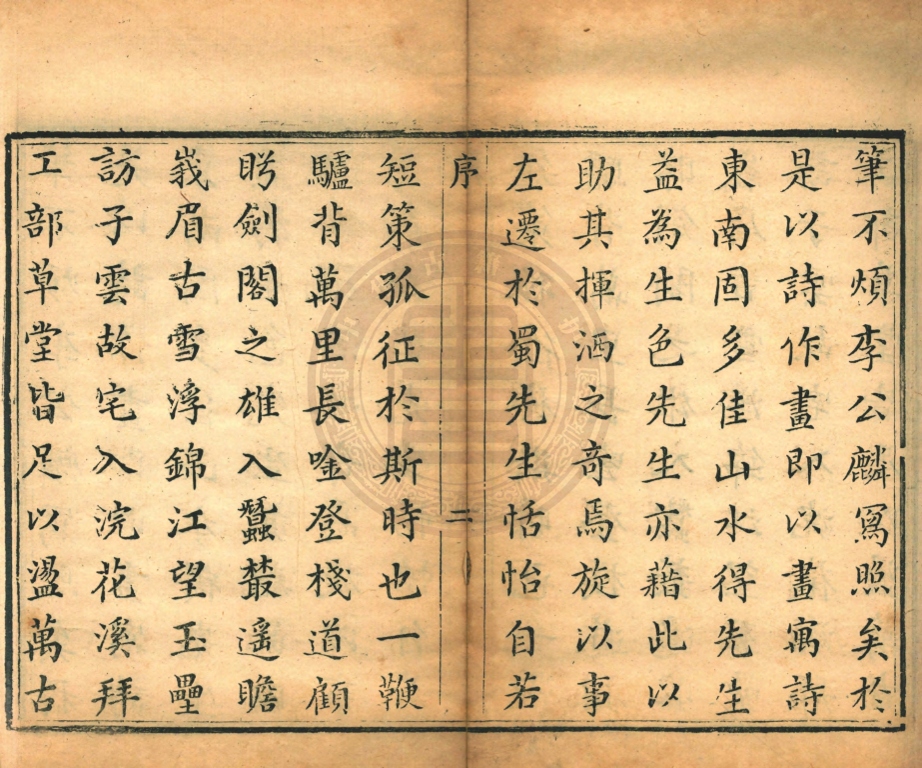 筆不煩李公麟寫照矣於
是以詩作畫即以畫寓詩
東南固多佳山水得先生
益為生色先生亦藉此以
助其揮洒之奇焉旋以事
左遷於蜀先生恬怡自若
序
二
短策孤征於斯時也一鞭
驢背萬里長唫登棧道顧
盻劍閣之雄入蠶叢遥瞻
峩眉古雪浮錦江望玉壘
訪子雲故宅入浣花溪拜
工部草堂皆足以盪萬古